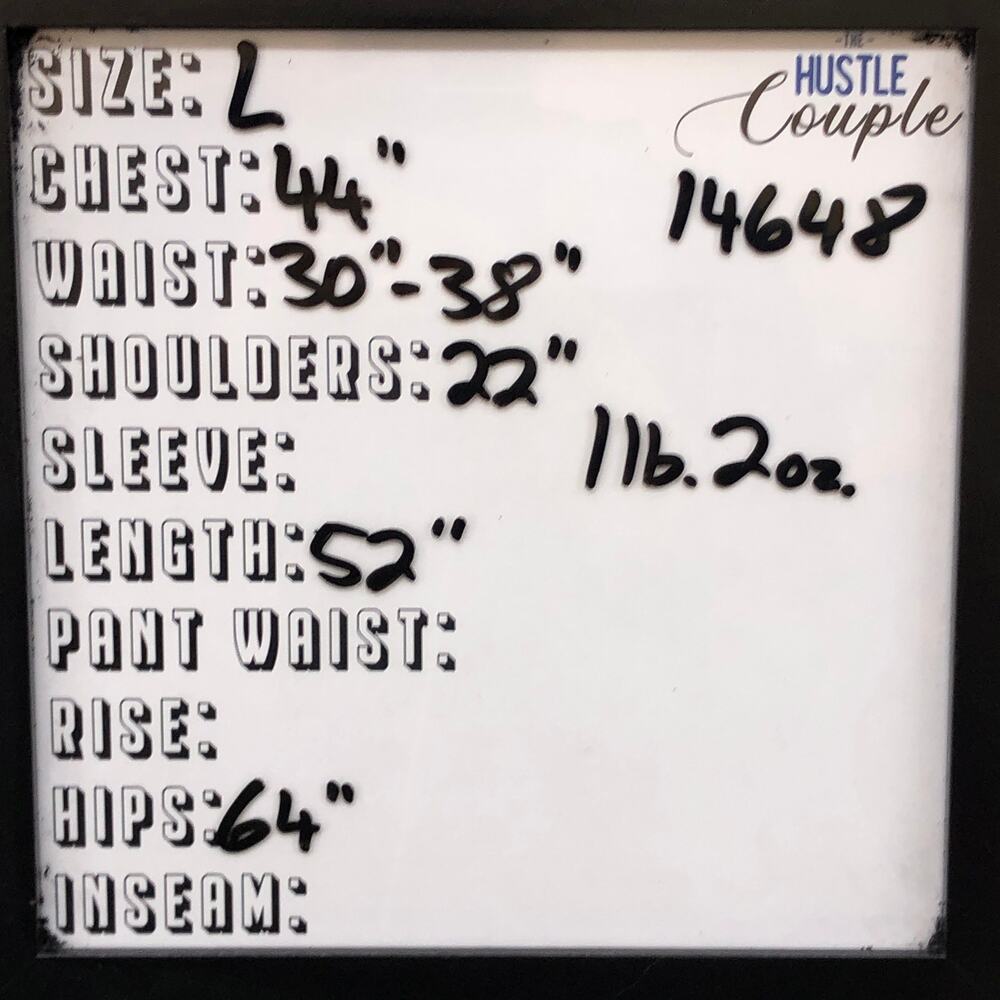 THE
HUSTLE
Couple
SIZE: L
CHEST: 44"
14648
WAIST: 30"-38"
SHOULDERS: 22"
SLEEVE:
1 lb. 2 oz.
LENGTH: 52"
PANT WAIST:
RISE:
HIPS: 64"
INSEAM: